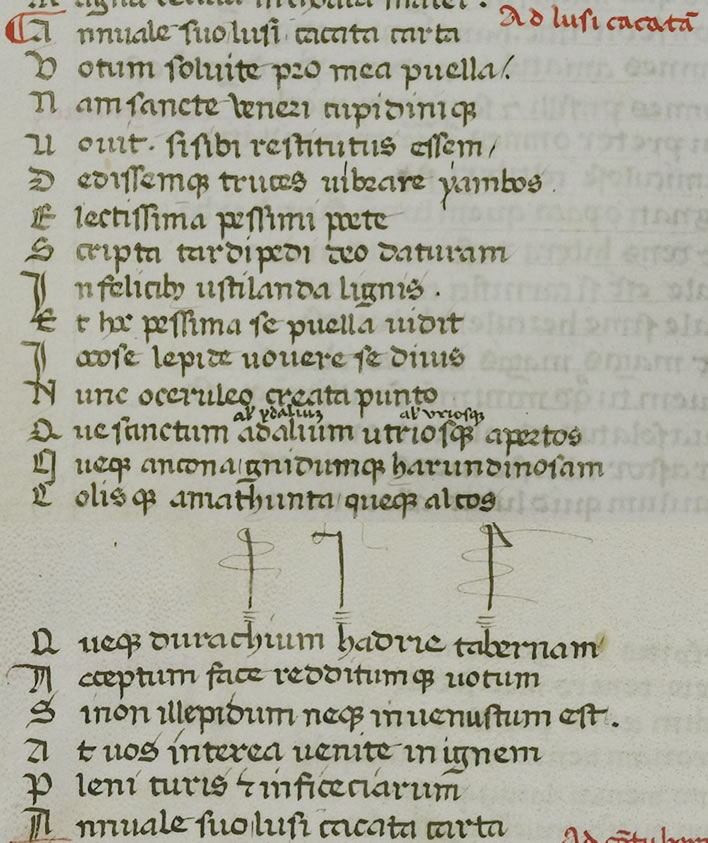 Ad lusi cacatā
Annuale suo lusi cacata carta
Votum soluite pro mea puella/.
Nam sancte veneri cupidiniqꝫ
Uouit. si sibi restitutus essem/
Dedissemqꝫ truces uibrare yambos.
Electissima pessimi poete
Scripta tardipedi deo daturam
Infelicibꝫ ustilanda lignis.
Et hec pessima se puella uidit
Iocose lepide uouere se diuis
Nunc oceruleo creata punto
al' ydalium al' vriosqꝫ
Que sanctum adalium utriosqꝫ apertos
Queqꝫ ancona gnidumqꝫ harundinosam
Colisqꝫ amathunta queqꝫ alcos
Queqꝫ durachium hadrie tabernam
Acceptum face redditumqꝫ uotum
Si non illepidum neqꝫ inuenustum est.
At uos interea uenite in ignem
Pleni turis ⁊ inficeciarum̄
Annuale suo lusi cacata carta